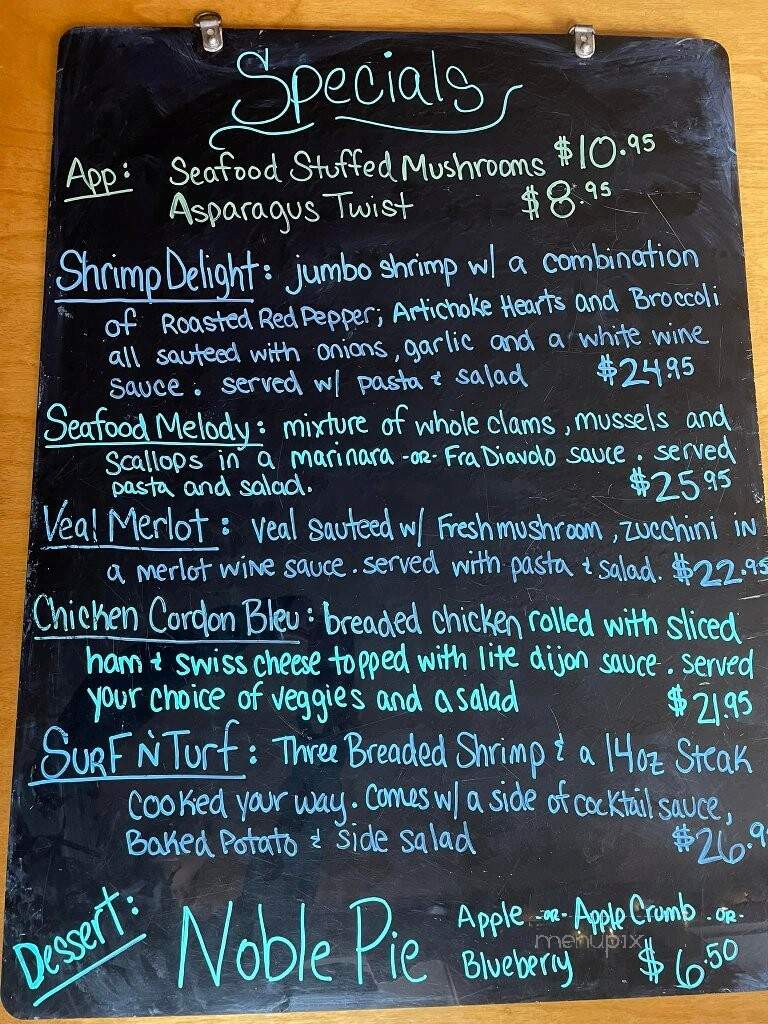 Specials
App: Seafood Stuffed Mushrooms $10.95
Asparagus Twist $8.95
Shrimp Delight: jumbo shrimp w/ a combination
of Roasted Red Pepper, Artichoke Hearts and Broccoli
all sauteed with onions, garlic and a white wine
sauce. served w/ pasta & salad $24.95
Seafood Melody: mixture of whole clams, mussels and
scallops in a marinara -OR- Fra Diavolo sauce. served
pasta and salad. $25.95
Veal Merlot: veal sauteed w/ Fresh mushroom, zucchini in
a merlot wine sauce. served with pasta & salad. $22.95
Chicken Cordon Bleu: breaded chicken rolled with sliced
ham & swiss cheese topped with lite dijon sauce. served
your choice of veggies and a salad $21.95
Surf N' Turf: Three Breaded Shrimp & a 14oz Steak
cooked your way. Comes w/ a side of cocktail sauce,
Baked Potato & side salad $26.9
Dessert: Noble Pie Apple -OR- Apple Crumb -OR-
Blueberry $6.50
menupix